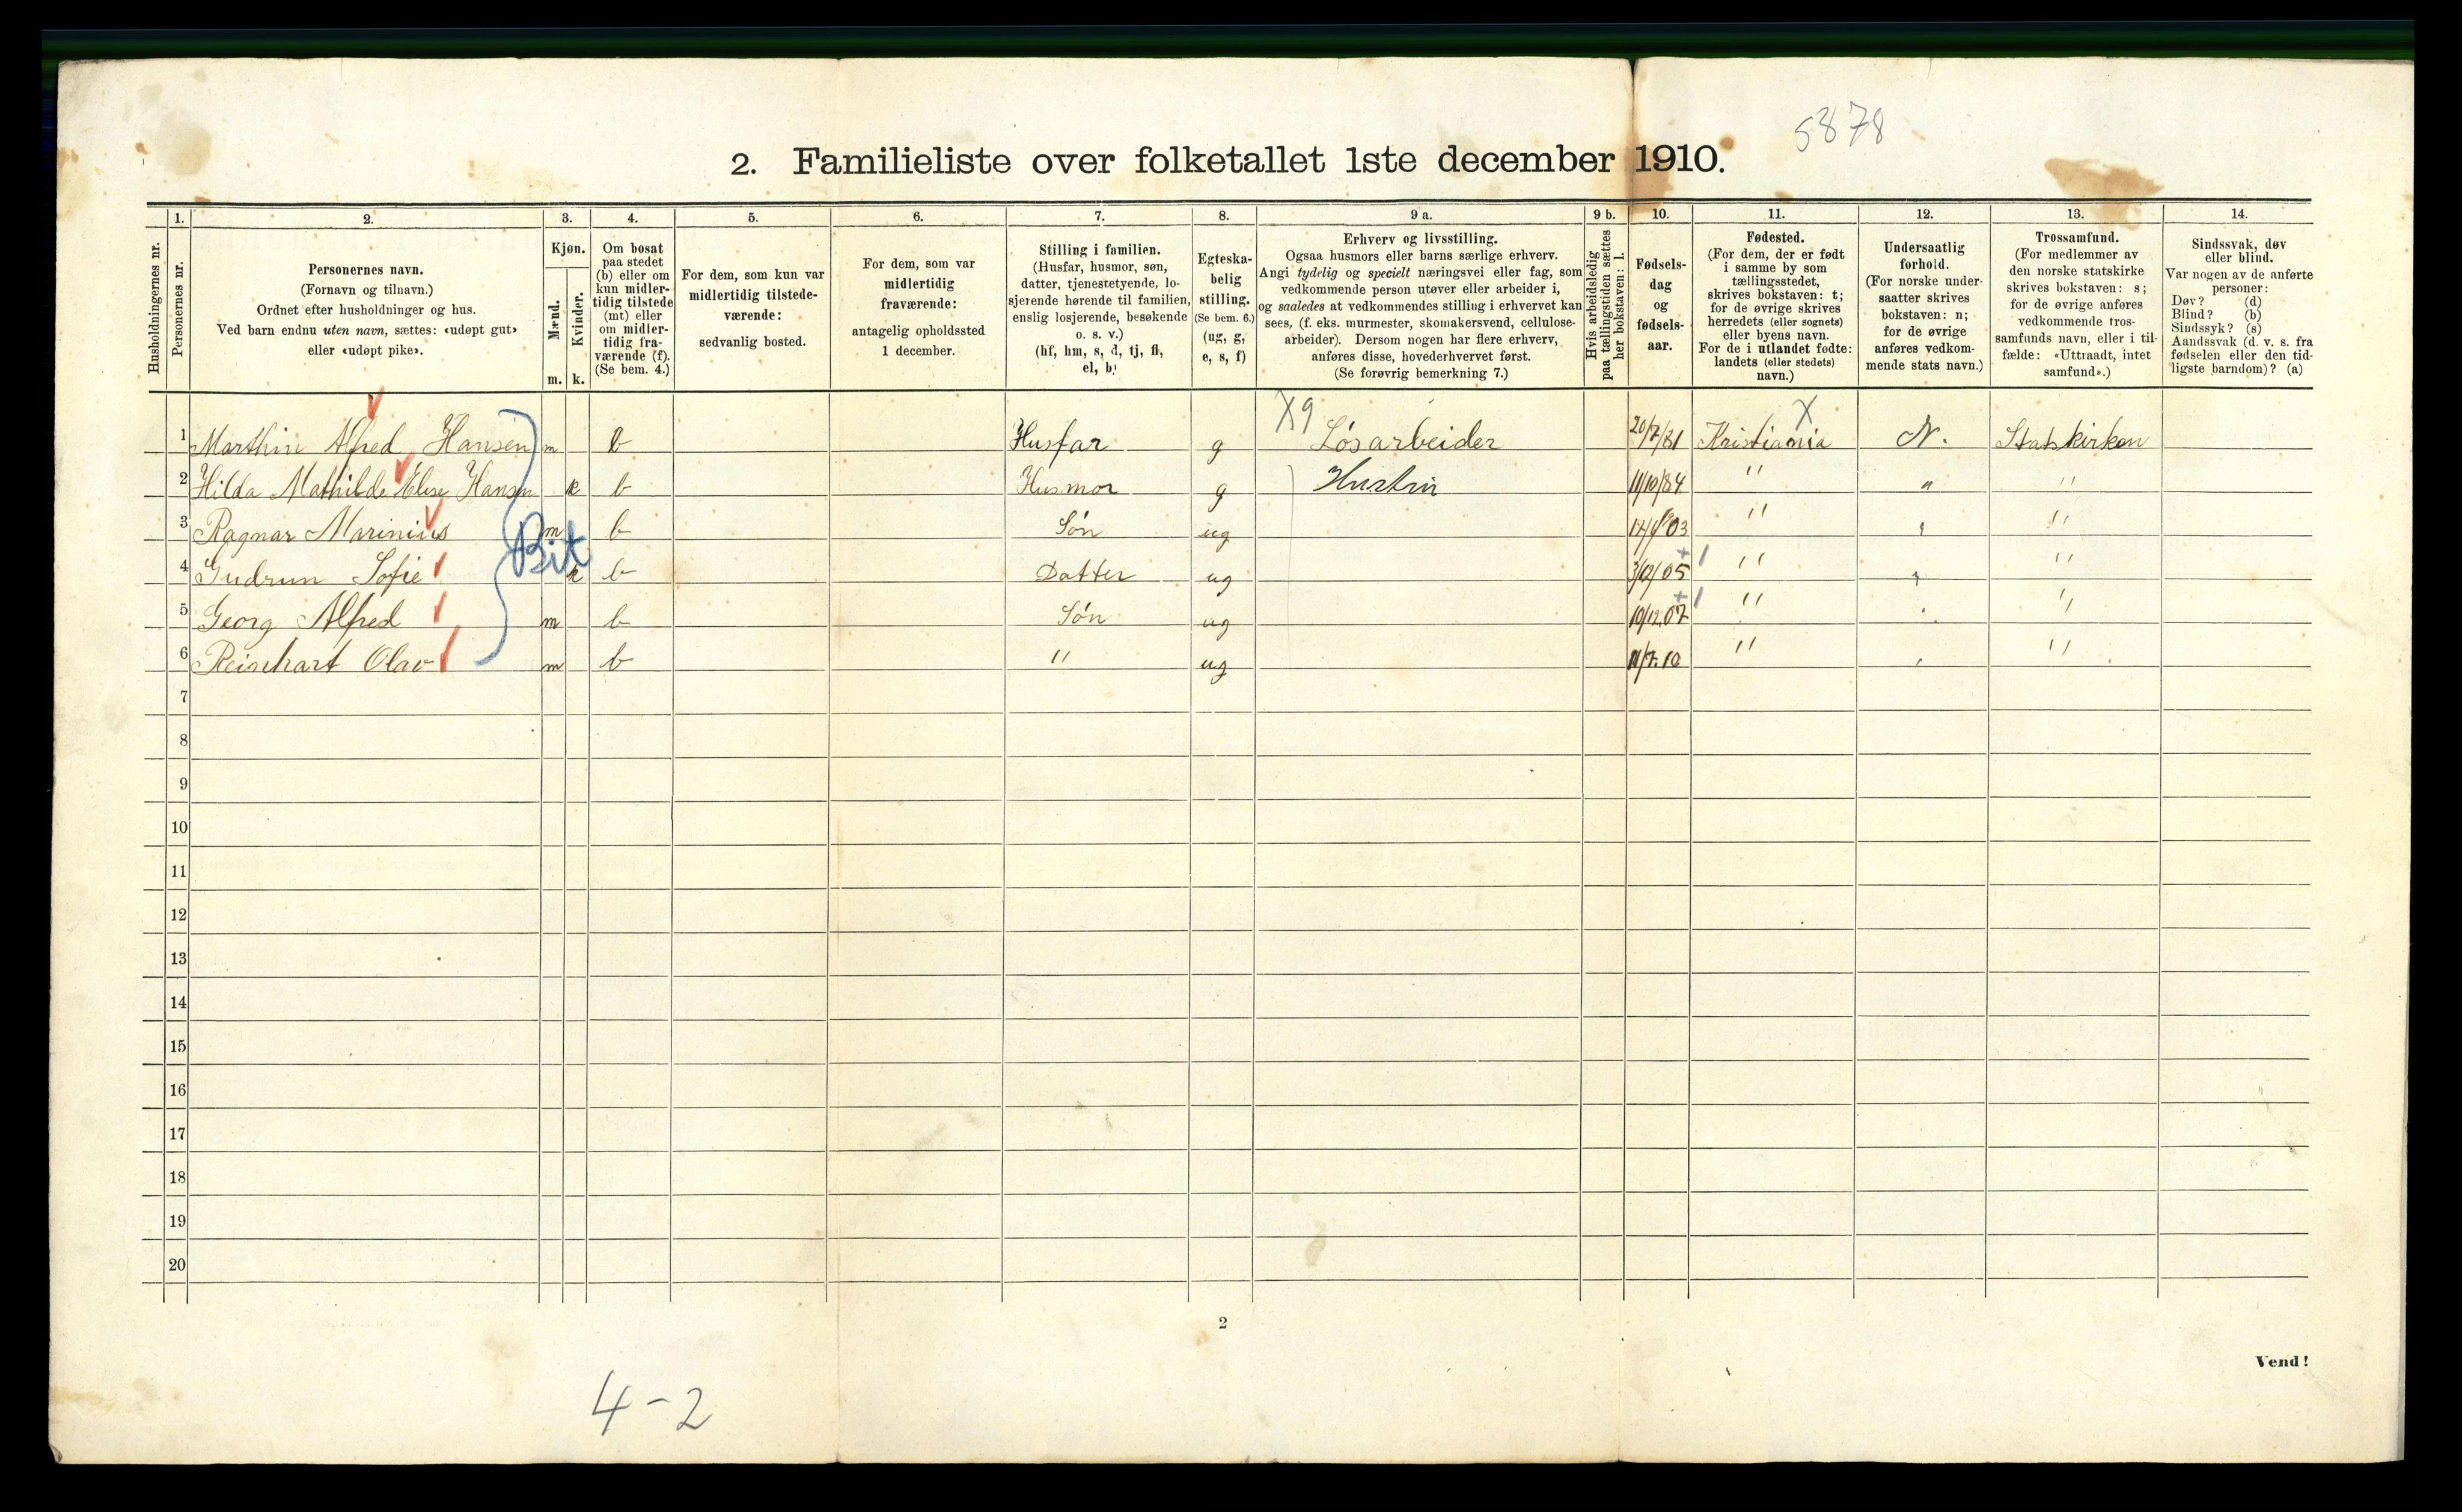 5878
2. Familieliste over folketallet 1ste december 1910.
Husholdningernes nr.
1.
Personernes nr.
2.
Personernes navn.
(Fornavn og tilnavn.)
Ordnet efter husholdninger og hus.
Ved barn endnu uten navn, sættes: «udøpt gut»
eller «udøpt pike».
3.
Kjøn.
Mænd.
Kvinder.
m. k.
4.
Om bosat
paa stedet
(b) eller om
kun midler-
tidig tilstede
(mt) eller
om midler-
tidig fra-
værende (f).
(Se bem. 4.)
5.
For dem, som kun var
midlertidig tilstede-
værende:
sedvanlig bosted.
6.
For dem, som var
midlertidig
fraværende:
antagelig opholdssted
1 december.
7.
Stilling i familien.
(Husfar, husmor, søn,
datter, tjenestetyende, lo-
sjerende hørende til familien,
enslig losjerende, besøkende
o. s. v.)
(hf, hm, s, d, tj, fl,
el, b)
8.
Egteska-
belig
stilling.
(Se bem. 6.)
(ug, g,
e, s, f)
9 a.
Erhverv og livsstilling.
Ogsaa husmors eller barns særlige erhverv.
Angi tydelig og specielt næringsvei eller fag, som
vedkommende person utøver eller arbeider i,
og saaledes at vedkommendes stilling i erhvervet kan
sees, (f. eks. murmester, skomakersvend, cellulose-
arbeider). Dersom nogen har flere erhverv,
anføres disse, hovederhvervet først.
(Se forøvrig bemerkning 7.)
9 b.
Hvis arbeidsledig
paa tællingstiden sættes
her bokstaven: l.
10.
Fødsels-
dag
og
fødsels-
aar.
11.
Fødested.
(For dem, der er født
i samme by som
tællingsstedet,
skrives bokstaven: t;
for de øvrige skrives
herredets (eller sognets)
eller byens navn.
For de i utlandet fødte:
landets (eller stedets)
navn.)
12.
Undersaatlig
forhold.
(For norske under-
saatter skrives
bokstaven: n;
for de øvrige
anføres vedkom-
mende stats navn.)
13.
Trossamfund.
(For medlemmer av
den norske statskirke
skrives bokstaven: s;
for de øvrige anføres
vedkommende tros-
samfunds navn, eller i til-
fælde: «Uttraadt, intet
samfund».)
14.
Sindssvak, døv
eller blind.
Var nogen av de anførte
personer:
Døv? (d)
Blind? (b)
Sindssyk? (s)
Aandssvak (d. v. s. fra
fødselen eller den tid-
ligste barndom)? (a)
X9 X
1 Marthin Alfred Hansen m b Husfar g Løsarbeider 20/7/81 Kristiania N. Statskirken
2 Hilda Mathilde Elise Hansen k b Husmor g Hustru 11/10/84 " " "
3 Ragnar Marinius m b Søn ug " " "
Bit
4 Gudrun Sofie k b Datter ug 3/12/05 " " "
5 Georg Alfred m b Søn ug 10/12.07 " " "
6 Reinhart Olav m b " ug 11/7.10 " " "
7
8
9
10
11
12
13
14
15
16
17
18
19
20
2
Vend!
4-2